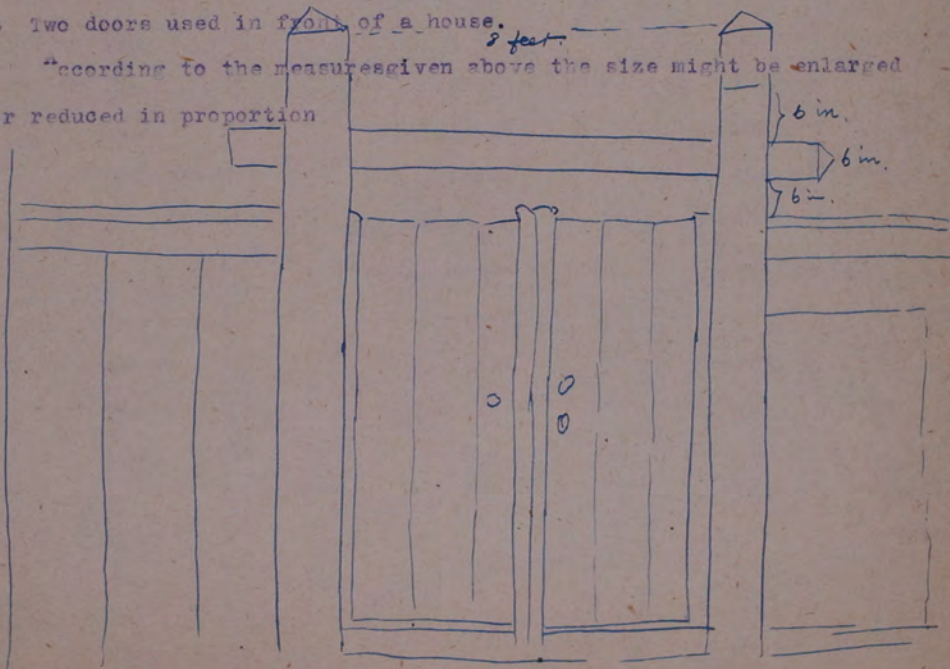 Two doors used in front of a house.
8 feet.
"ccording to the measuresgiven above the size might be enlarged
r reduced in proportion
6 in.
6 in.
6 in.